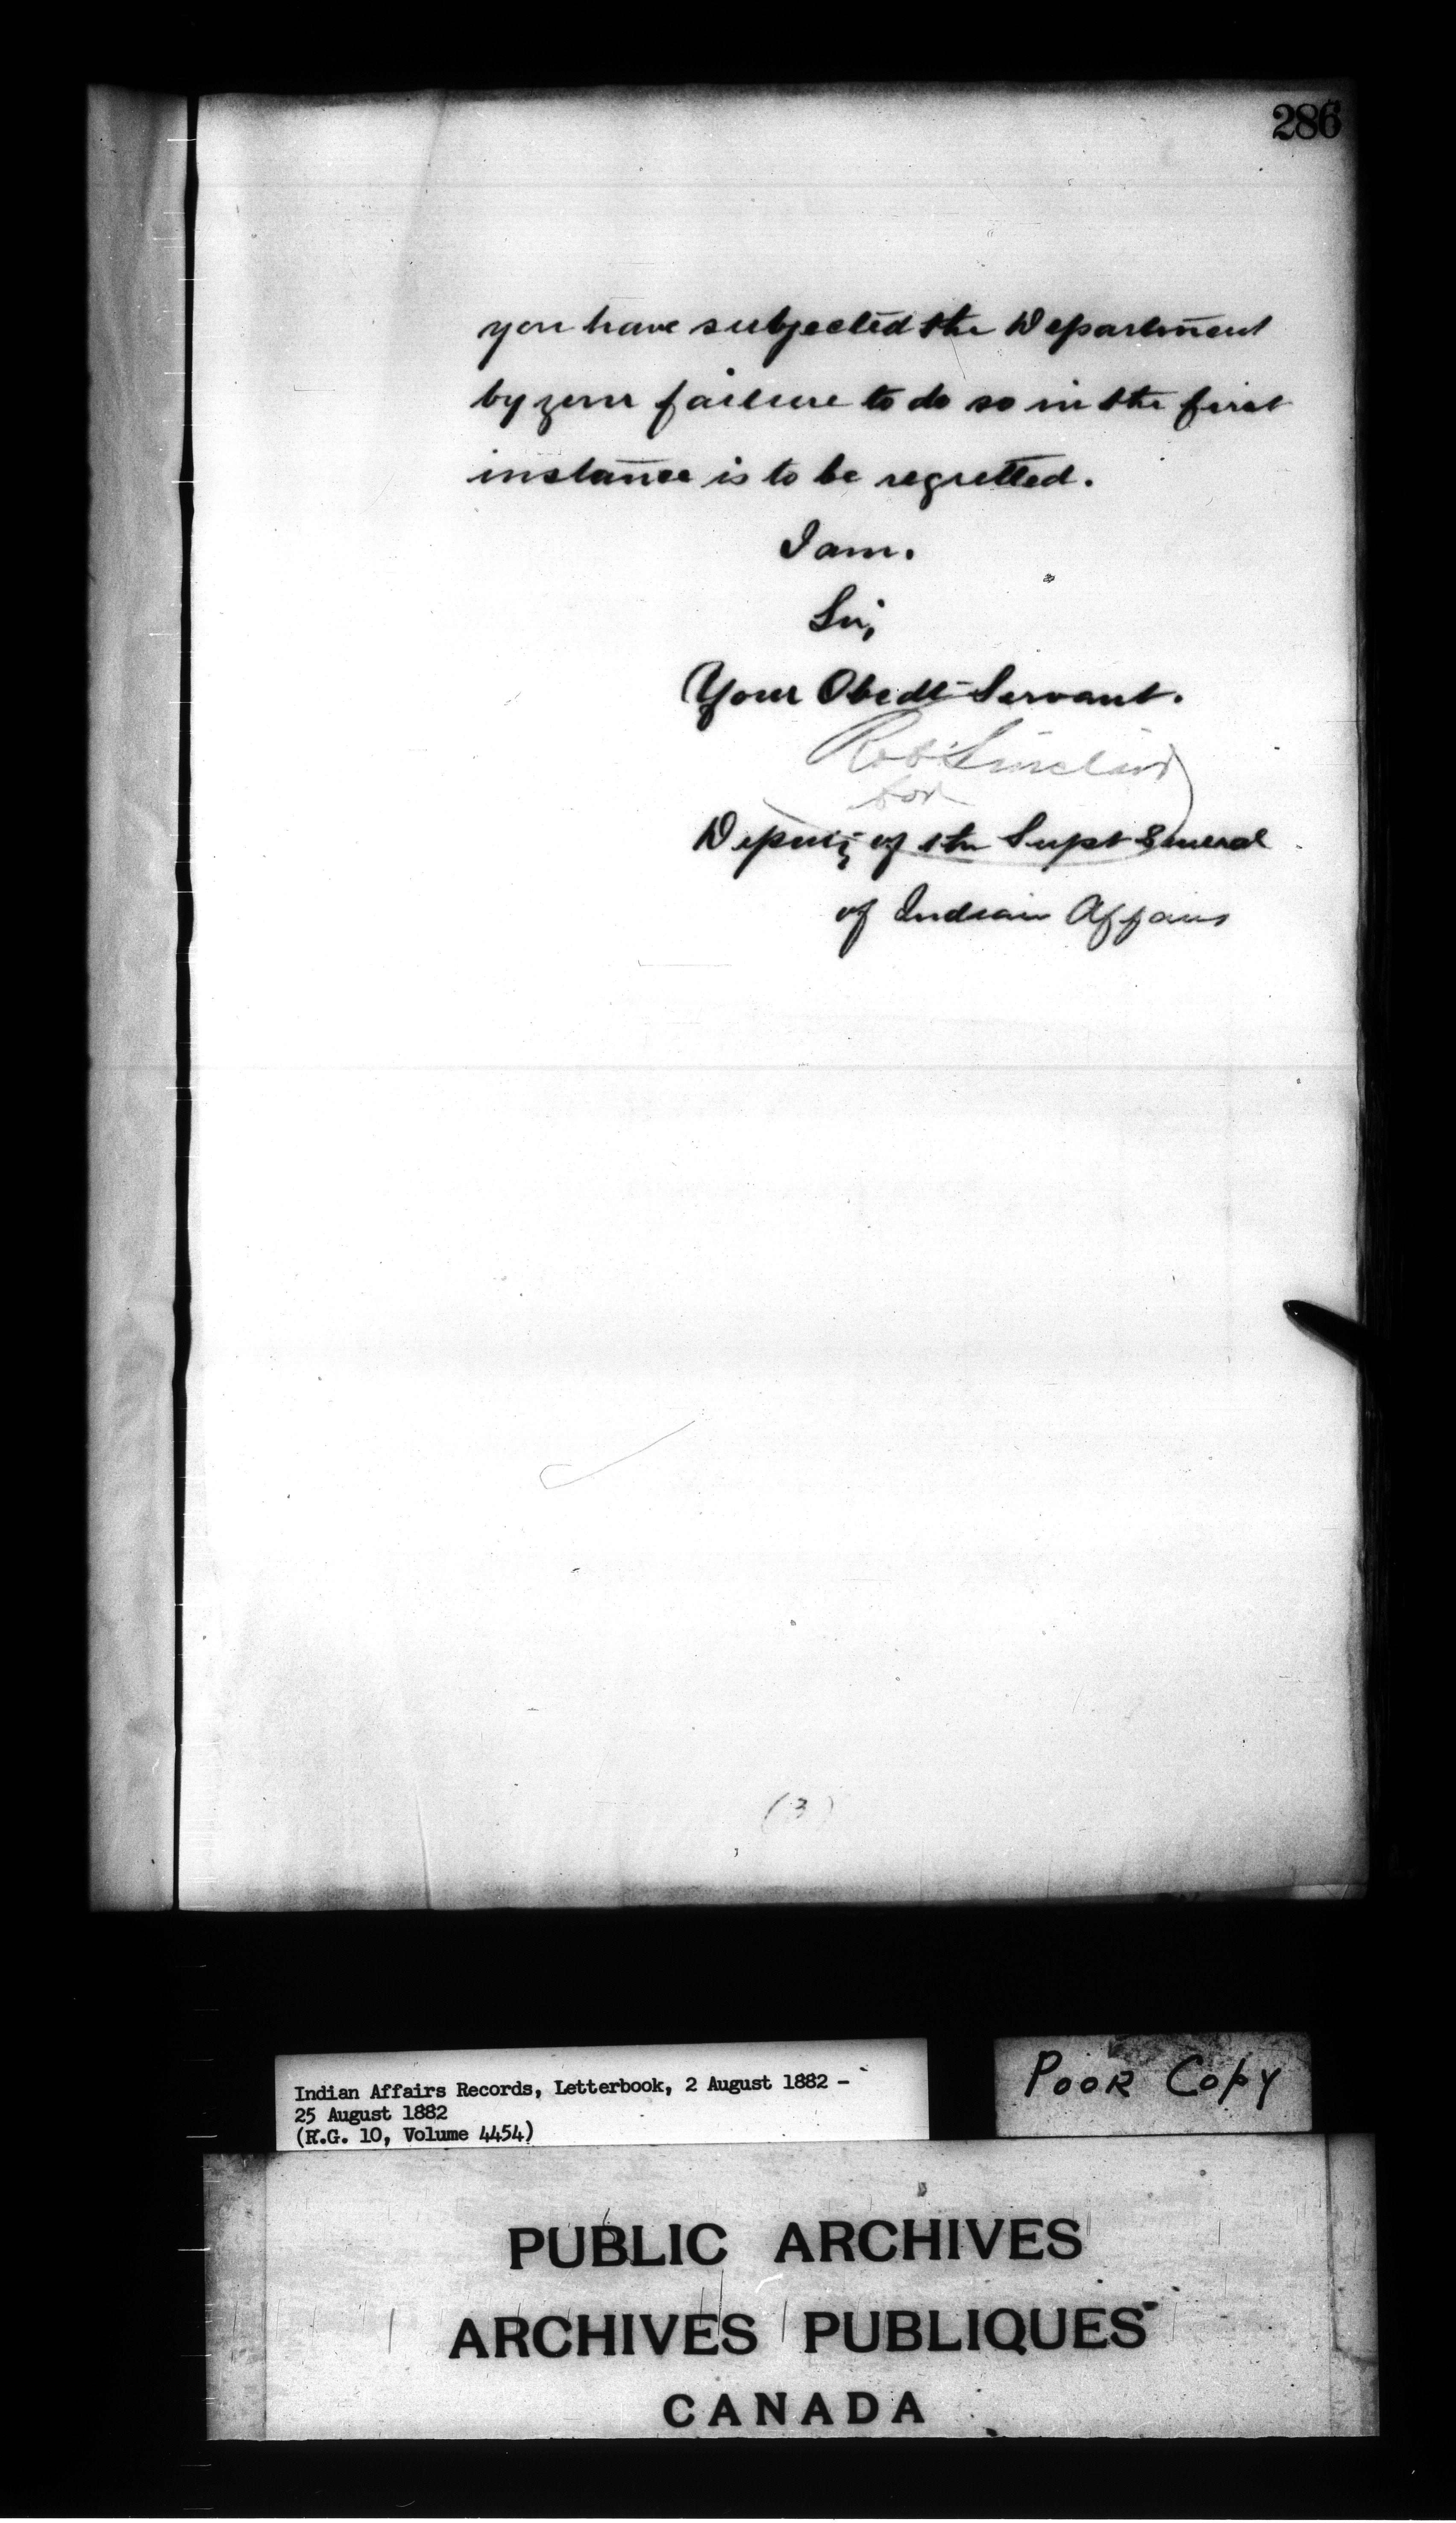 286
you have subjected the Department
by your failure to do so in the first
instance is to be regretted.
I am.
Sir,
Your Obedt Servant.
Robt Sinclair
for
Deputy of the Supt General
of Indian Affairs
(3)
Indian Affairs Records, Letterbook, 2 August 1882 -
25 August 1882
(R.G. 10, Volume 4454)
Poor Copy
PUBLIC ARCHIVES
ARCHIVES PUBLIQUES
CANADA